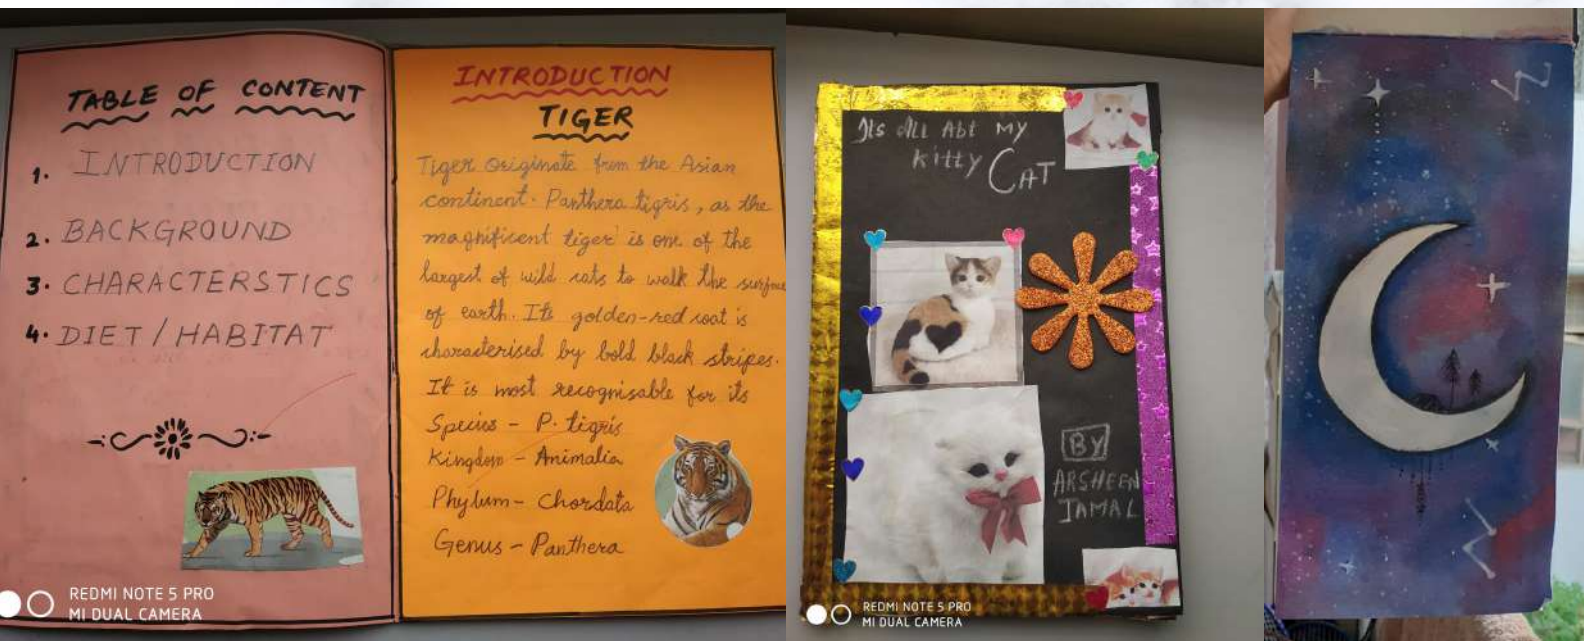 TABLE OF CONTENT
1. INTRODUCTION
2. BACKGROUND
3. CHARACTERSTICS
4. DIET / HABITAT
REDMI NOTE 5 PRO
MI DUAL CAMERA
INTRODUCTION
TIGER
Tiger originate from the Asian
continent. Panthera tigris, as the
magnificent tiger is one of the
largest of wild cats to walk the surface
of earth. Its golden-red coat is
characterised by bold black stripes.
It is most recognisable for its
Species - P. tigris
Kingdom - Animalia
Phylum - Chordata
Genus - Panthera
Its All Abt My
Kitty CAT
BY
ARSHEEN
JAMAL
REDMI NOTE 5 PRO
MI DUAL CAMERA